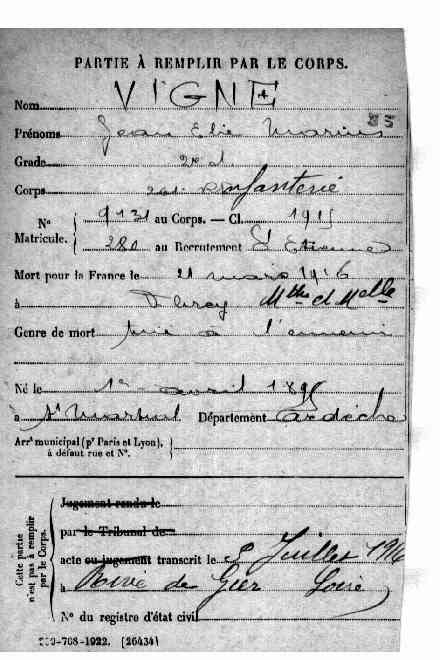 PARTIE À REMPLIR PAR LE CORPS.
Nom VIGNE
Prénoms Jean Elie Marius
Grade 2e cl
Corps d'Infanterie
Nº Matricule. 9131 au Corps. — Cl. 1915
280 au Recrutement St Etienne
Mort pour la France le 21 mars 1916
à Mthe et Mlle
Genre de mort tué à l'ennemi
Né le 1er avril 1895
à St Martial Département Ardèche
Arrt municipal (pr Paris et Lyon),
à défaut rue et Nº.
Cette partie
n'est pas à remplir
par le Corps.
Jugement rendu le
par le Tribunal de
acte ou jugement transcrit le Juillet 1916
à Rive de Gier Loire
Nº du registre d'état civil
-708-1922. [26434]